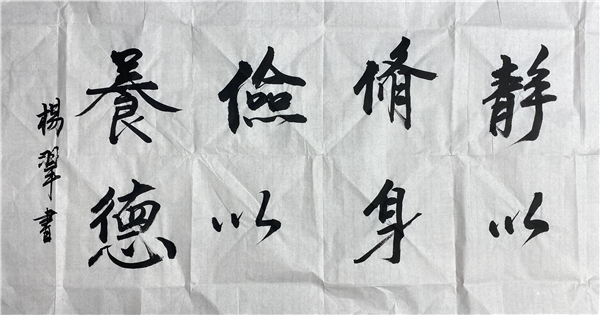 静以
脩身
儉以
養德
楊翠書